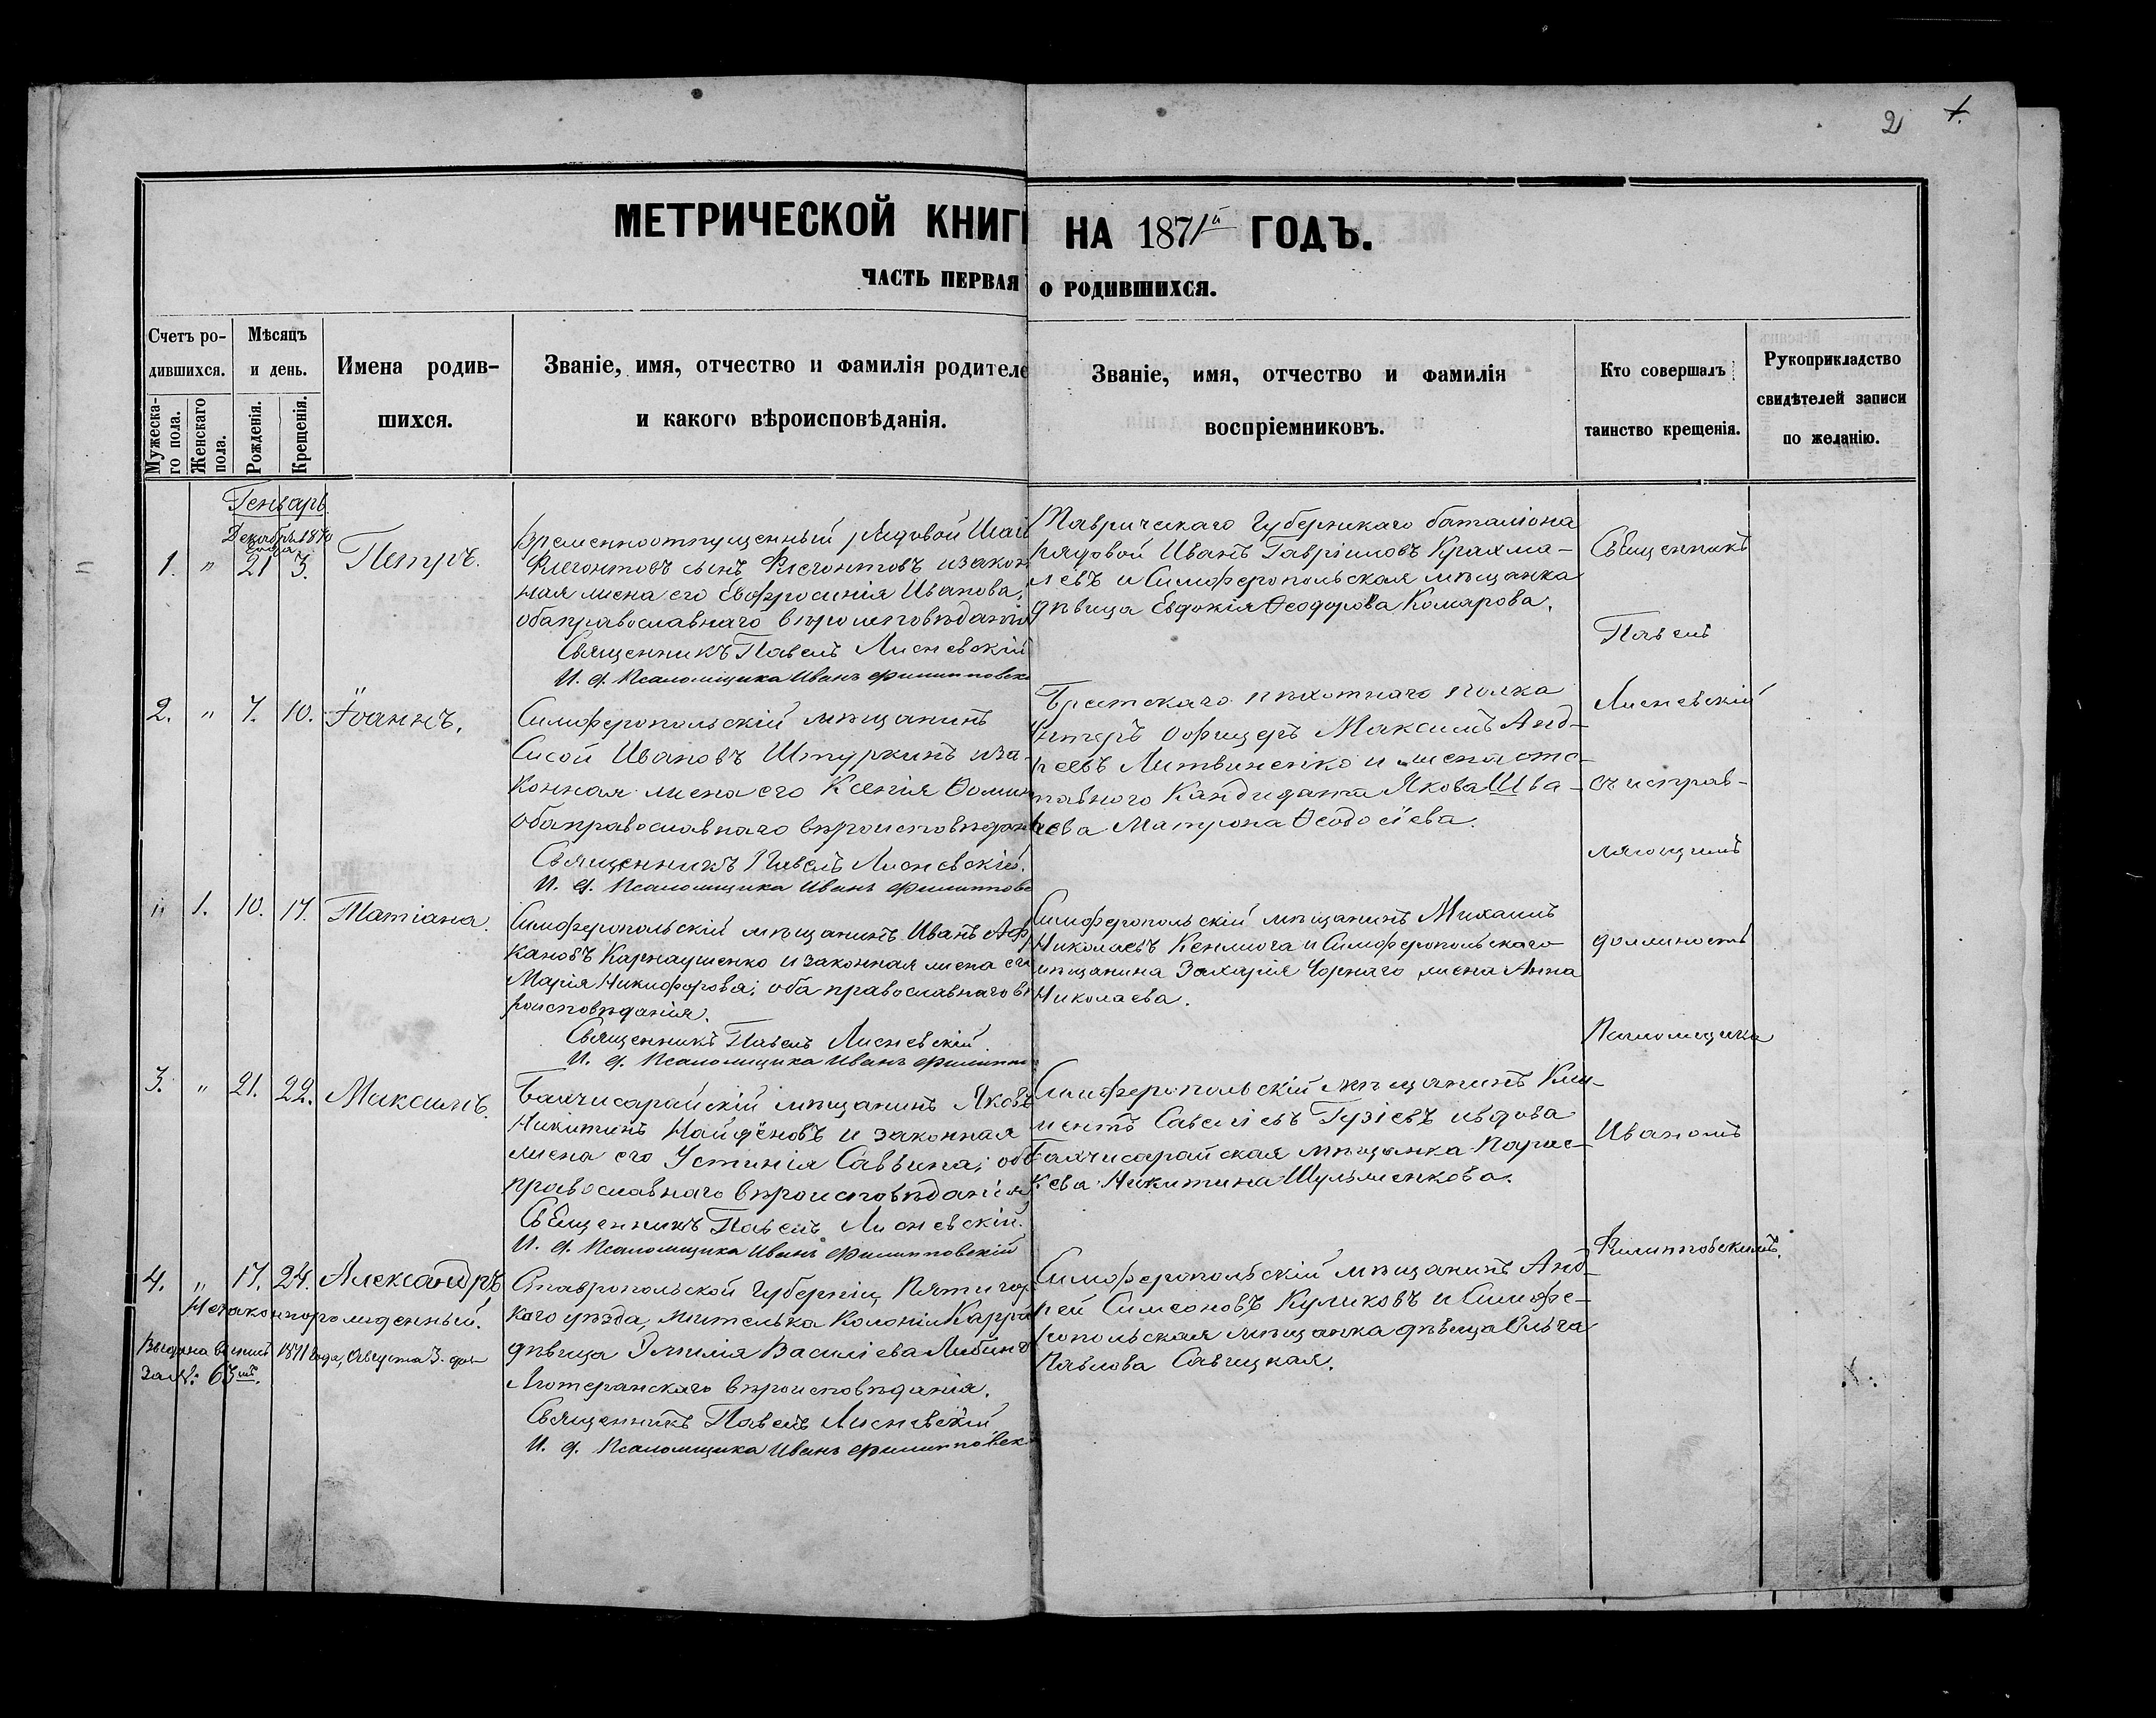 2 1.
МЕТРИЧЕСКОЙ КНИГ НА 1871й ГОДЪ.
ЧАСТЬ ПЕРВАЯ О РОДИВШИХСЯ.
Счетъ ро-
дившихся.
Мужеска-
го пола.
Женскаго
пола.
Мѣсяцъ
и день.
Рожденія.
Крещенія.
Имена родив-
шихся.
Званіе, имя, отчество и фамилія родителе
и какого вѣроисповѣданія.
Званіе, имя, отчество и фамилія
воспріемниковъ.
Кто совершалъ
таинство крещенія.
Рукоприкладство
свидѣтелей записи
по желанію.
Генварь.
Декабрь 1870
года
1. " 21 3. Петръ.
Временноотпущенный рядовой
Флегонтовъ сынъ Флегонтовъ и закон
ная жена его Евфросинія Иванова,
оба православнаго вѣроисповѣданія
Священникъ Павелъ Лисневскій
И. д. Псаломщика Иванъ Филипповск
Таврическаго Губернскаго баталіона
рядовой Иванъ Гавріиловъ Крахма-
левъ и Симферопольская мѣщанка
дѣвица Евдокія Ѳеодорова Комарова.
2. " 7. 10. Іоаннъ.
Симферопольскій мѣщанинъ
Сисой Ивановъ Штуркинъ и за-
конная жена его Ксенія Ѳомин
оба православнаго вѣроисповѣдан
Священникъ Павелъ Лисневскій.
И. д. Псаломщика Иванъ Филиппов
Брестскаго пѣхотнаго полка
Унтеръ Офицеръ Максимъ Анд-
реевъ Литвиненко и жена отс-
тавного Кандидата Якова Шва-
Матрона Ѳеодосіева.
" 1. 10. 17. Татіана.
Симферопольскій мѣщанинъ Иванъ Аф
кановъ Карнаушенко и законная жена его
Марія Никифорова; оба православнаго вѣ
роисповѣданія.
Священникъ Павелъ Лисневскій.
И. д. Псаломщика Иванъ Филиппо
Симферопольскій мѣщанинъ Михаилъ
Николаевъ Кенжога и Симферопольскаго
мѣщанина Захарія Чорнаго жена Анна
Николаева.
3. " 21. 22. Максимъ.
Бахчисарайскій мѣщанинъ Яковъ
Никитинъ Найдёновъ и законная
жена его Устинія Саввина; оба
православнаго вѣроисповѣданія
Священникъ Павелъ Лисневскій.
И. д. Псаломщика Иванъ Филипповскій
Симферопольскій мѣщанинъ Кли-
ментъ Савеліевъ Гузіевъ и вдова
Бахчисарайская мѣщанка Парас-
кева Никитина Шульженкова.
4. " 17. 24. Александръ
Незаконнорожденный.
Выдана 1871 года, Августа 3. дня
за №: 63мъ.
Ставропольской Губерніи, Пятигор
каго уѣзда, жителька Колоніи Карра
дѣвица Эмилія Василіева Либинг
Лютеранскаго вѣроисповѣданія.
Священникъ Павелъ Лисневскій
И. д. Псаломщика Иванъ Филипповск
Симферопольскій мѣщанинъ Анд-
рей Симеоновъ Куликовъ и Симфе-
ропольская мѣщанка дѣвица Ольга
Павлова Савицкая.
Священникъ
Павелъ
Лисневскій
съ исправ-
ляющимъ
должность
Псаломщика
Иваномъ
Филипповскимъ.